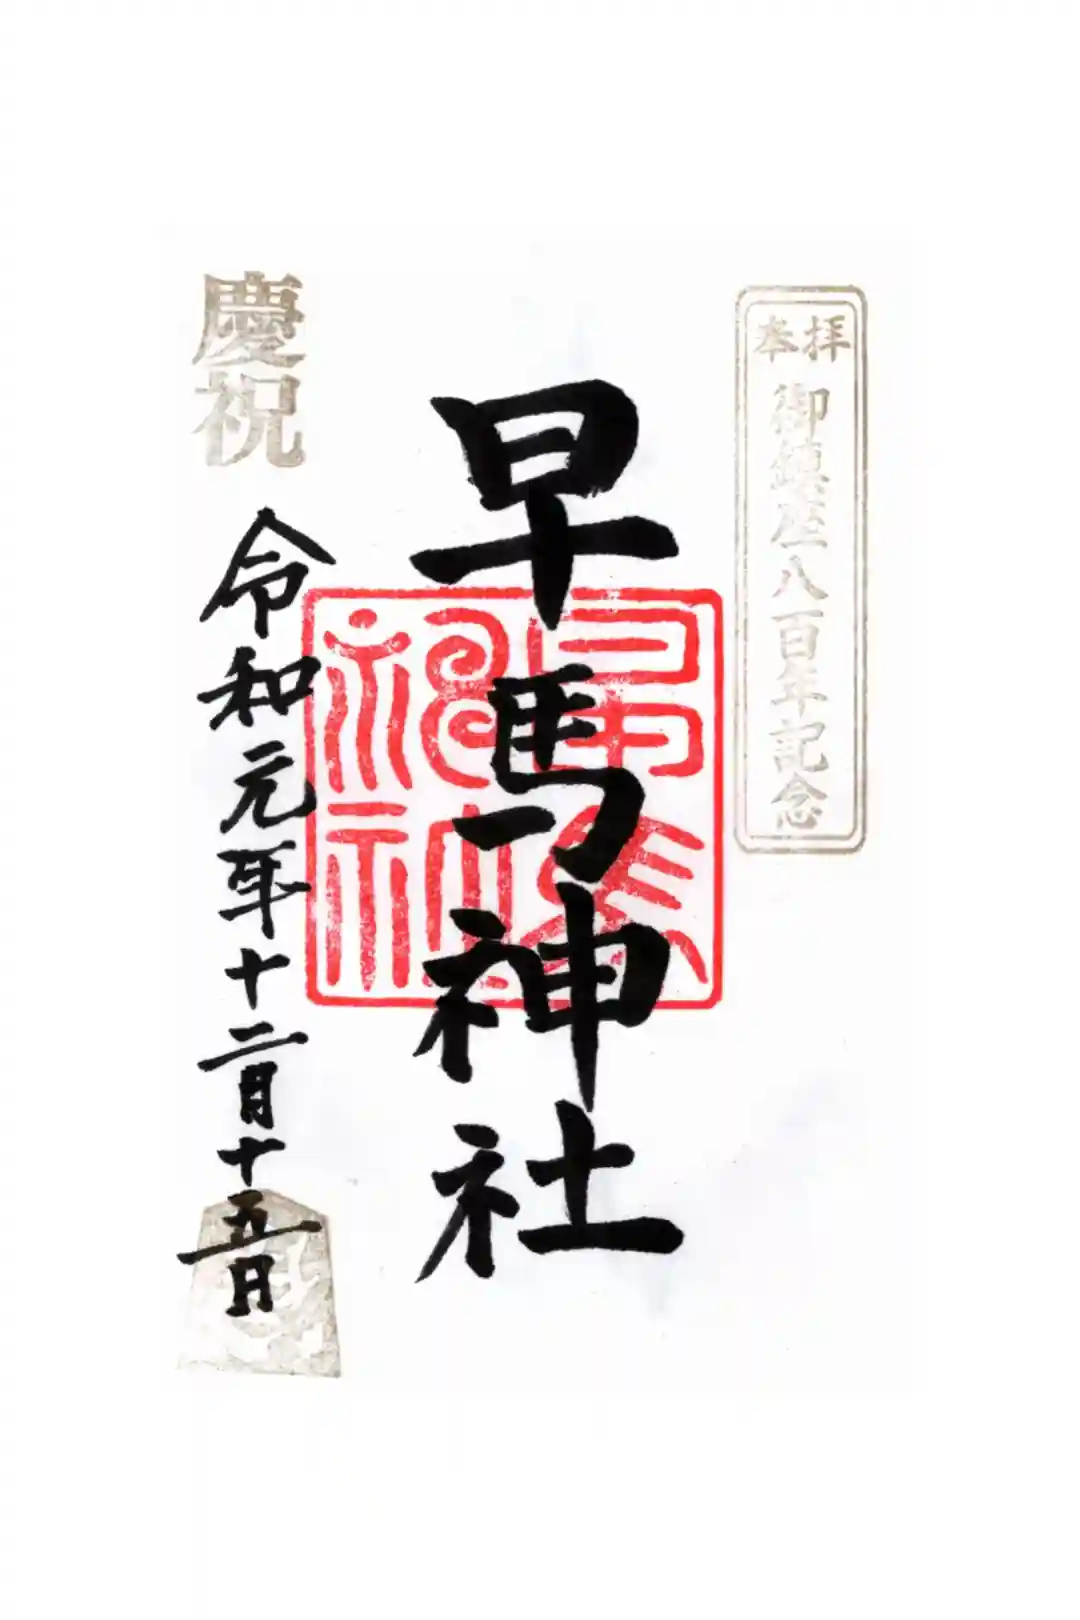 奉拝
御鎮座八百年記念
早馬神社
早馬神社
慶祝
令和元年十二月十五日